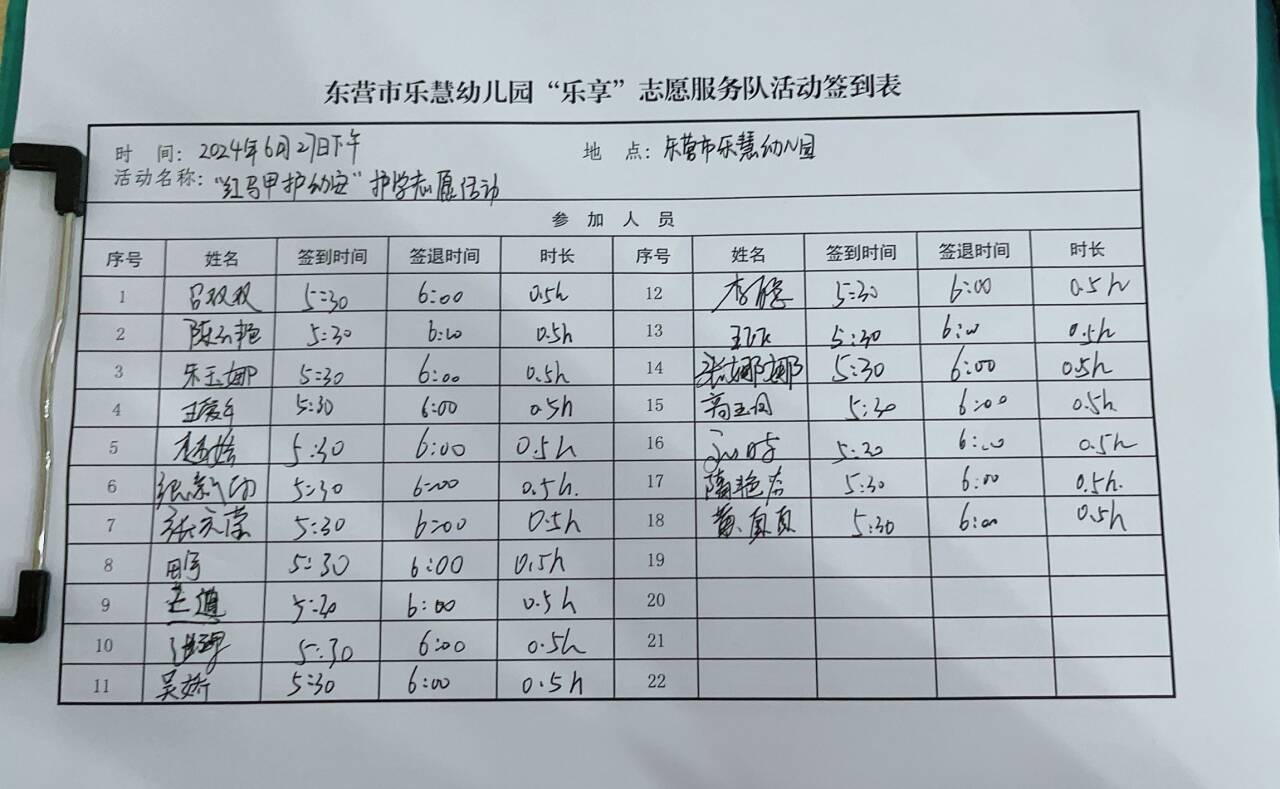 东营市乐慧幼儿园“乐享”志愿服务队活动签到表
时 间：2024年6月27日下午 地 点：东营市乐慧幼儿园
活动名称：“红马甲护幼安”护学志愿活动
参 加 人 员
序号 姓名 签到时间 签退时间 时长 序号 姓名 签到时间 签退时间 时长
1 吕双双 5:30 6:00 0.5h 12 5:30 6:00 0.5h
2 5:30 6:00 0.5h 13 5:30 6:00 0.5h
3 朱玉娜 5:30 6:00 0.5h 14 张娜娜 5:30 6:00 0.5h
4 5:30 6:00 0.5h 15 5:30 6:00 0.5h
5 5:30 6:00 0.5h 16 5:30 6:00 0.5h
6 5:30 6:00 0.5h. 17 5:30 6:00 0.5h.
7 5:30 6:00 0.5h 18 黄真真 5:30 6:00 0.5h
8 5:30 6:00 0.5h 19
9 5:30 6:00 0.5h 20
10 5:30 6:00 0.5h 21
11 吴娇 5:30 6:00 0.5h 22